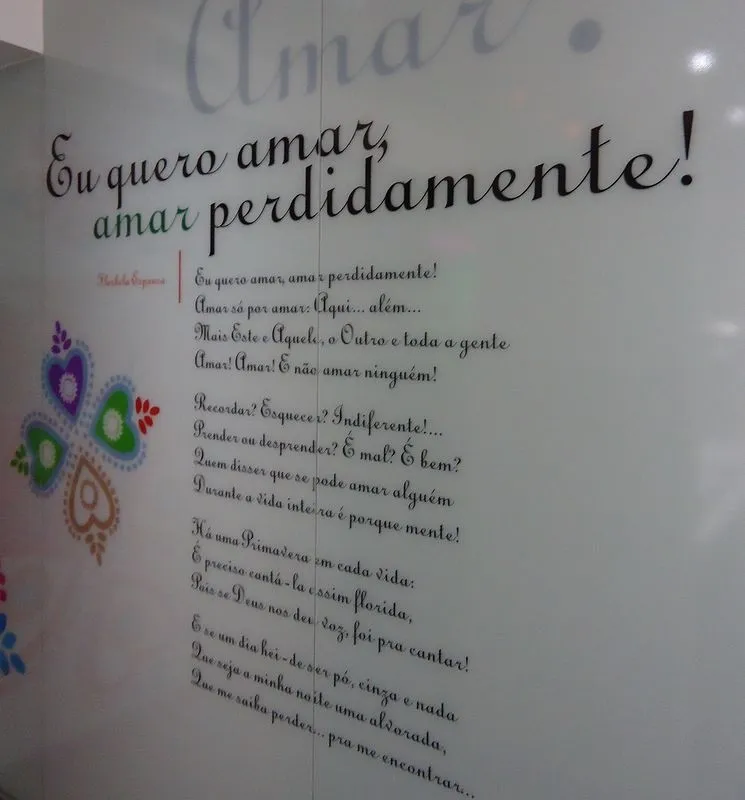 Amar!
Eu quero amar,
amar perdidamente!
Florbela Espanca
Eu quero amar, amar perdidamente!
Amar só por amar: Aqui... além...
Mais Este e Aquele, o Outro e toda a gente
Amar! Amar! E não amar ninguém!
Recordar? Esquecer? Indiferente!...
Prender ou desprender? É mal? É bem?
Quem disser que se pode amar alguém
Durante a vida inteira é porque mente!
Há uma Primavera em cada vida:
É preciso cantá-la assim florida,
Pois se Deus nos deu voz, foi pra cantar!
E se um dia hei-de ser pó, cinza e nada
Que seja a minha noite uma alvorada,
Que me saiba perder... pra me encontrar...